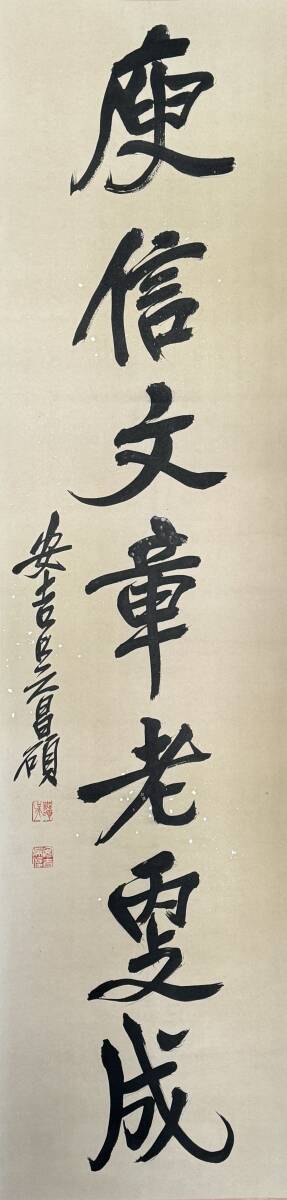 庾信文章老更成
安吉吴昌碩